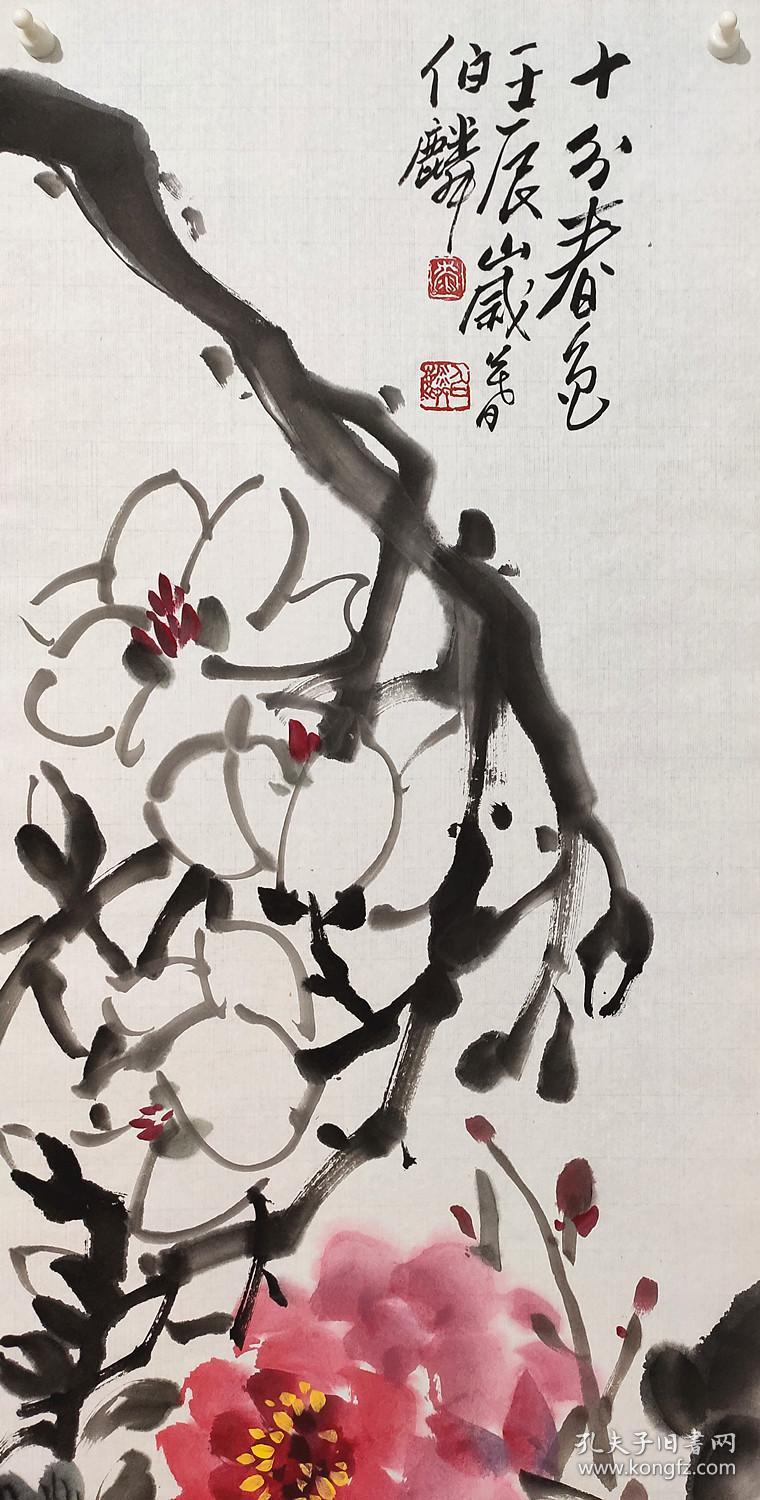 十分春色
壬辰歲春
伯麟
伯麟
孔夫子旧书网
www.kongfz.com